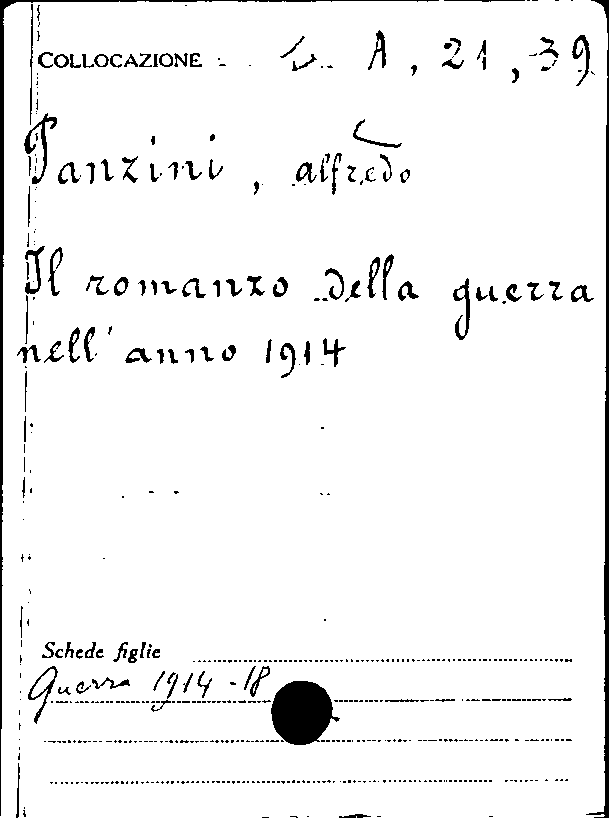 COLLOCAZIONE A, 21, 39
Panzini, Alfredo
Il romanzo della guerra
nell'anno 1914
Schede figlie
Guerra 1914-18